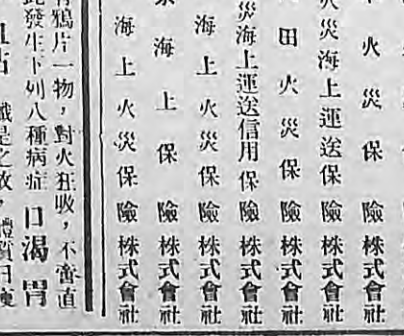 火災保險株式會社
火災海上運送保險株式會社
田火災保險株式會社
災海上運送信用保險株式會社
海上火災保險株式會社
海上保險株式會社
海上火災保險株式會社
鴉片一物，對火狂吸，不啻直
發生下列八種病症 口渴 胃